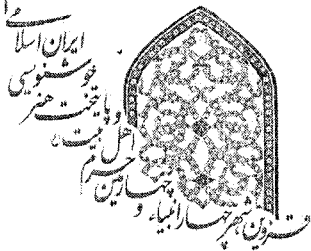 قزوین شهر چهار انبیاء و
چهارمین حرم
اهل بیت
و پایتخت هنر
خوشنویسی
ایران اسلامی